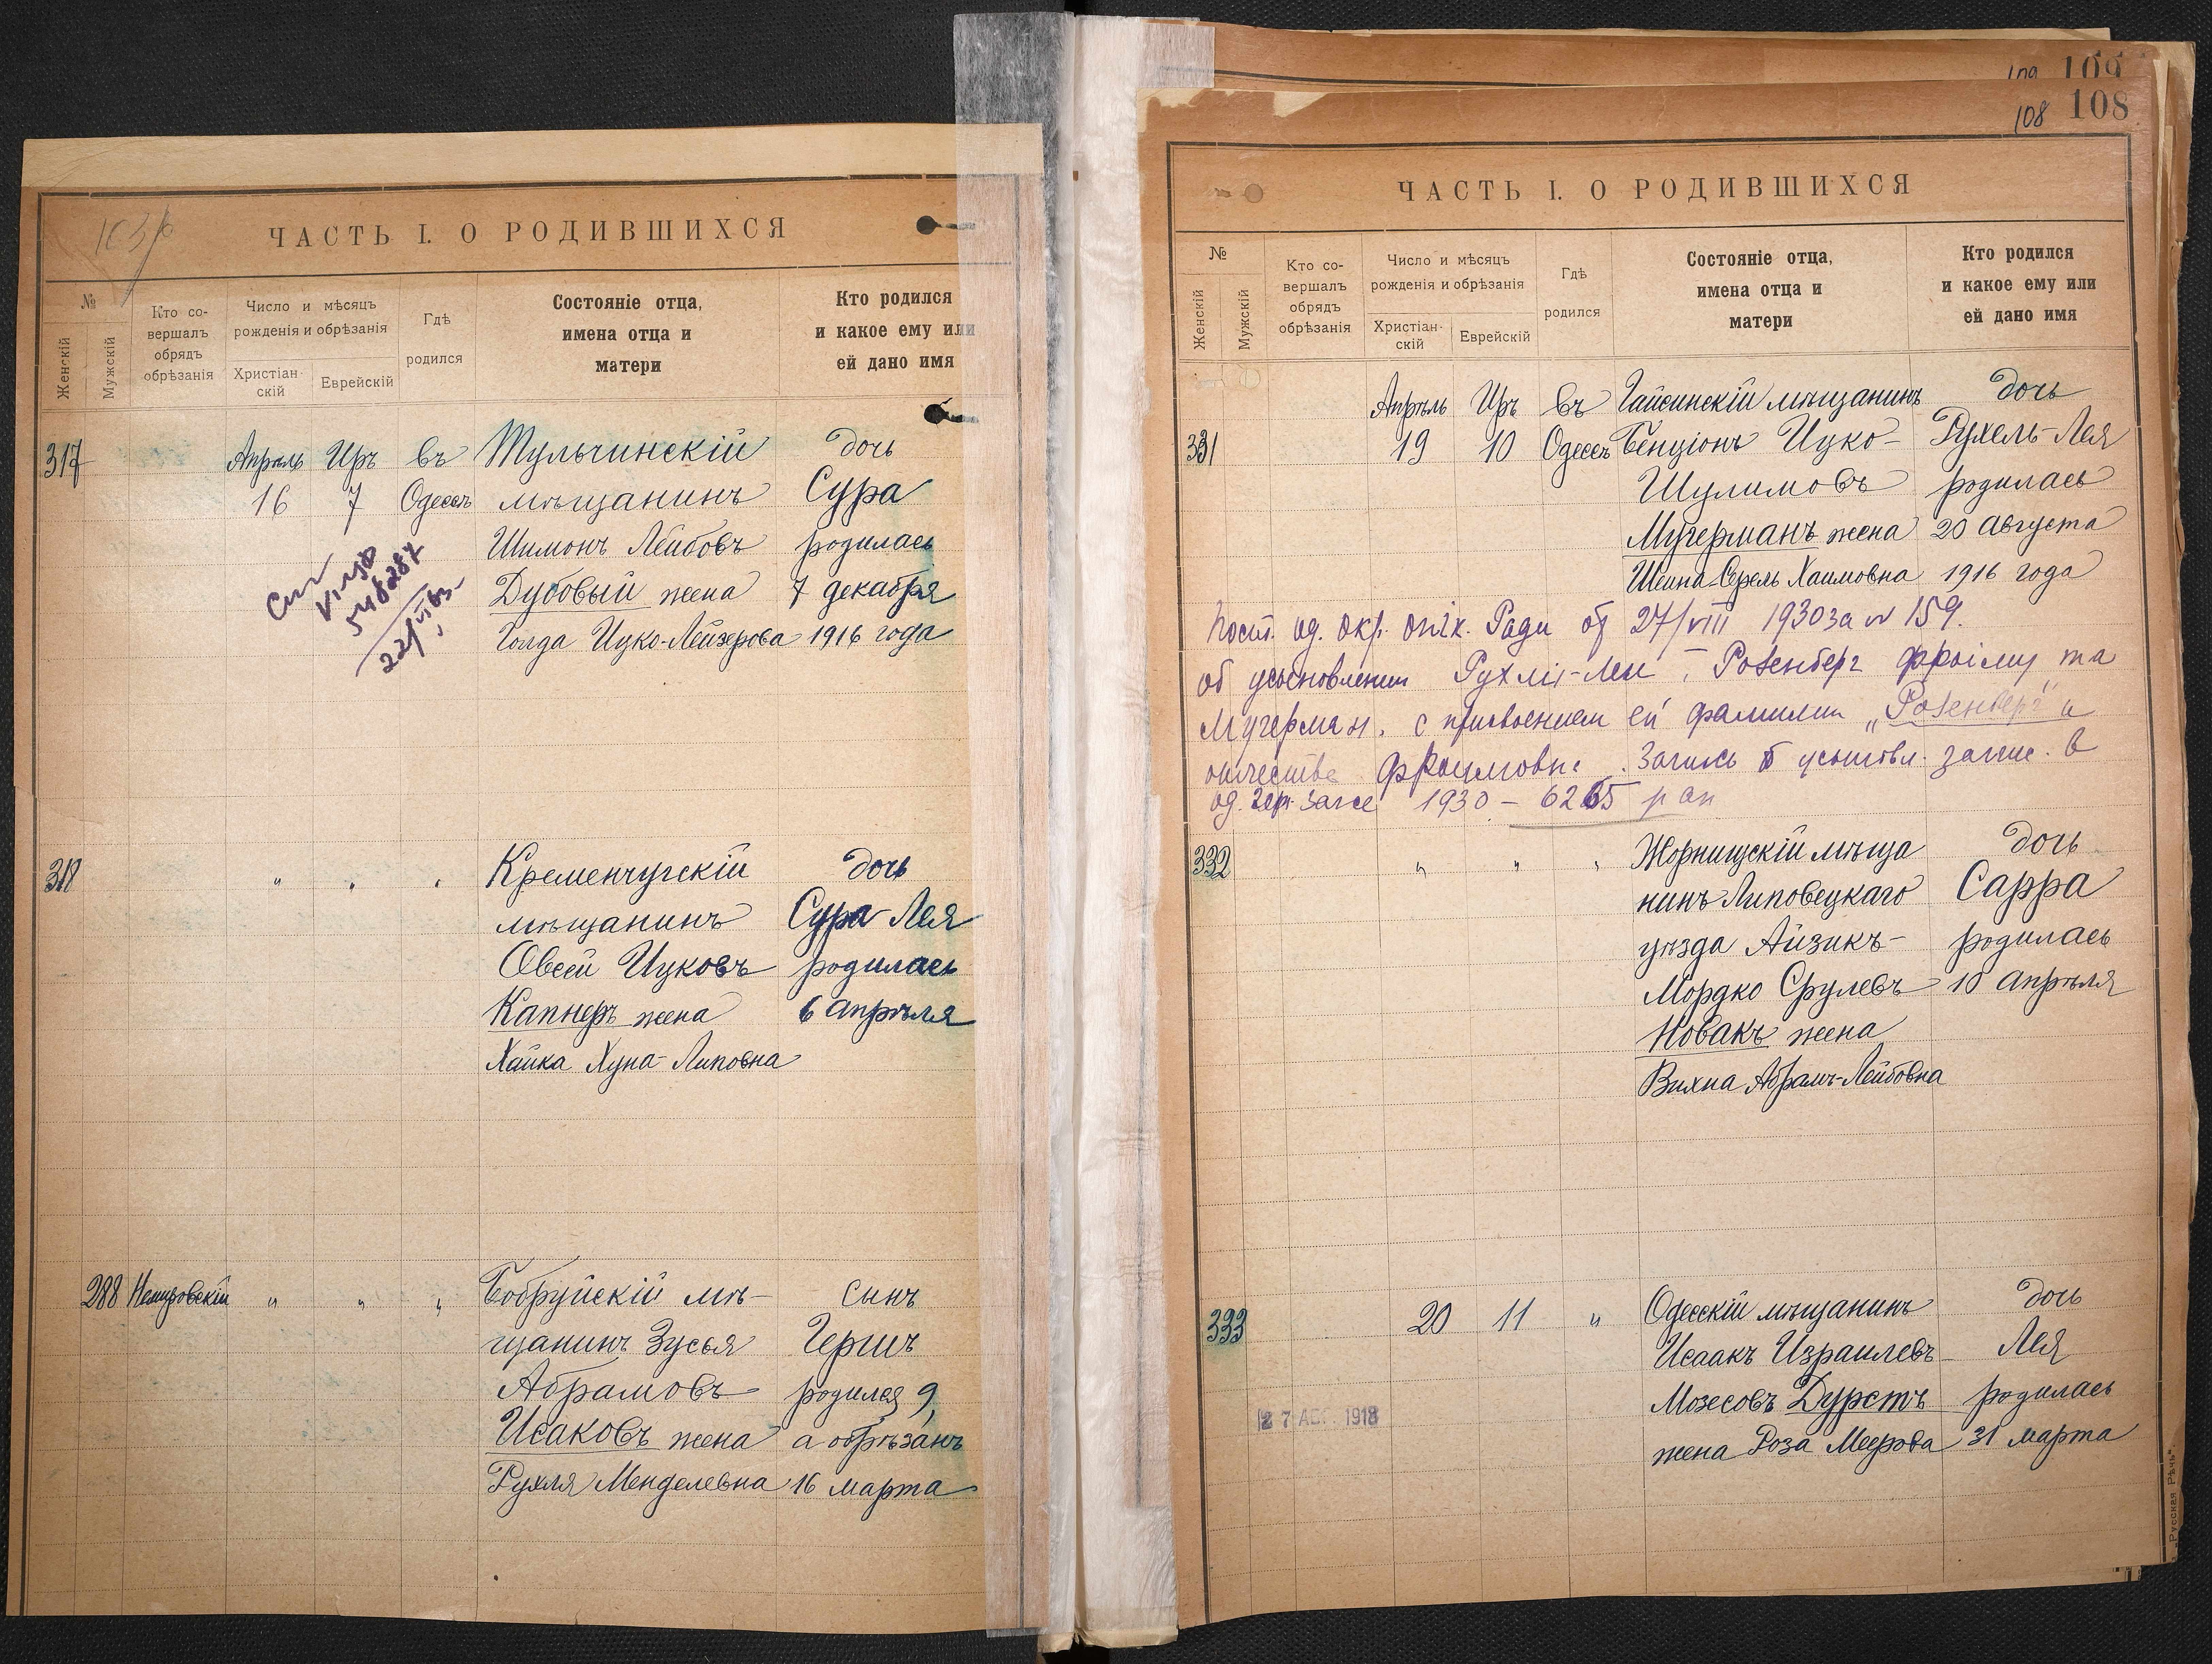 ЧАСТЬ I. О РОДИВШИХСЯ
№
Женскій
Мужскій
Кто со-
вершалъ
обрядъ
обрѣзанія
Число и мѣсяцъ
рожденія и обрѣзанія
Христіан-
скій
Еврейскій
Гдѣ
родился
Состояніе отца,
имена отца и
матери
Кто родился
и какое ему или
ей дано имя
317 Апрѣль Иръ въ Тульчинскій дочь
16 7 Одессѣ мѣщанинъ Сура
Шимонъ Лейбовъ родилась
Дубовый жена 7 декабря
Голда Ицко-Лейзерова 1916 года
318 " " " Кременчугскій дочь
мѣщанинъ Сура-Лея
Овсей Ицковъ родилась
Капнеръ жена 6 апрѣля
Хайка Хуна-Липовна
288 Немировскій " " " Бобруйскій мѣ- сынъ
щанинъ Зусья Гершъ
Абрамовъ родился 9,
Исаковъ жена а обрѣзанъ
Рухля Менделевна 16 марта
109 109
108 108
ЧАСТЬ I. О РОДИВШИХСЯ
№
Женскій
Мужскій
Кто со-
вершалъ
обрядъ
обрѣзанія
Число и мѣсяцъ
рожденія и обрѣзанія
Христіан-
скій
Еврейскій
Гдѣ
родился
Состояніе отца,
имена отца и
матери
Кто родился
и какое ему или
ей дано имя
Апрѣль Иръ въ Гайсинскій мѣщанинъ дочь
331 19 10 Одессѣ Бенціонъ Ицко- Рухель-Лея
Шулимовъ родилась
Мучерманъ жена 20 августа
Шеина-Серель Хаимовна 1916 года
Пост. од. окр. опік. Ради от 27/VIII 1930 за № 159.
об усыновлении Рухлі-Леи Розенберг Фроіму та
Мучерман. с присвоением ей фамилии „Розенберг" и
отчества Фроимовна. Запись о усыновл. запис. в
1930 – 6265
332 " " " Жорнищскій мѣща дочь
нинъ Липовецкаго Сарра
уѣзда Айзикъ- родилась
Мордко Срулевъ 10 апрѣля
Новакъ жена
Вихна Абрамъ-Лейбовна
333 20 11 " Одесскій мѣщанинъ дочь
Исаакъ Израилевъ Лея
Мозесовъ Дурстъ родилась
жена Роза Меерова 31 марта
27 АВГ. 1918
„Русская Рѣчь"